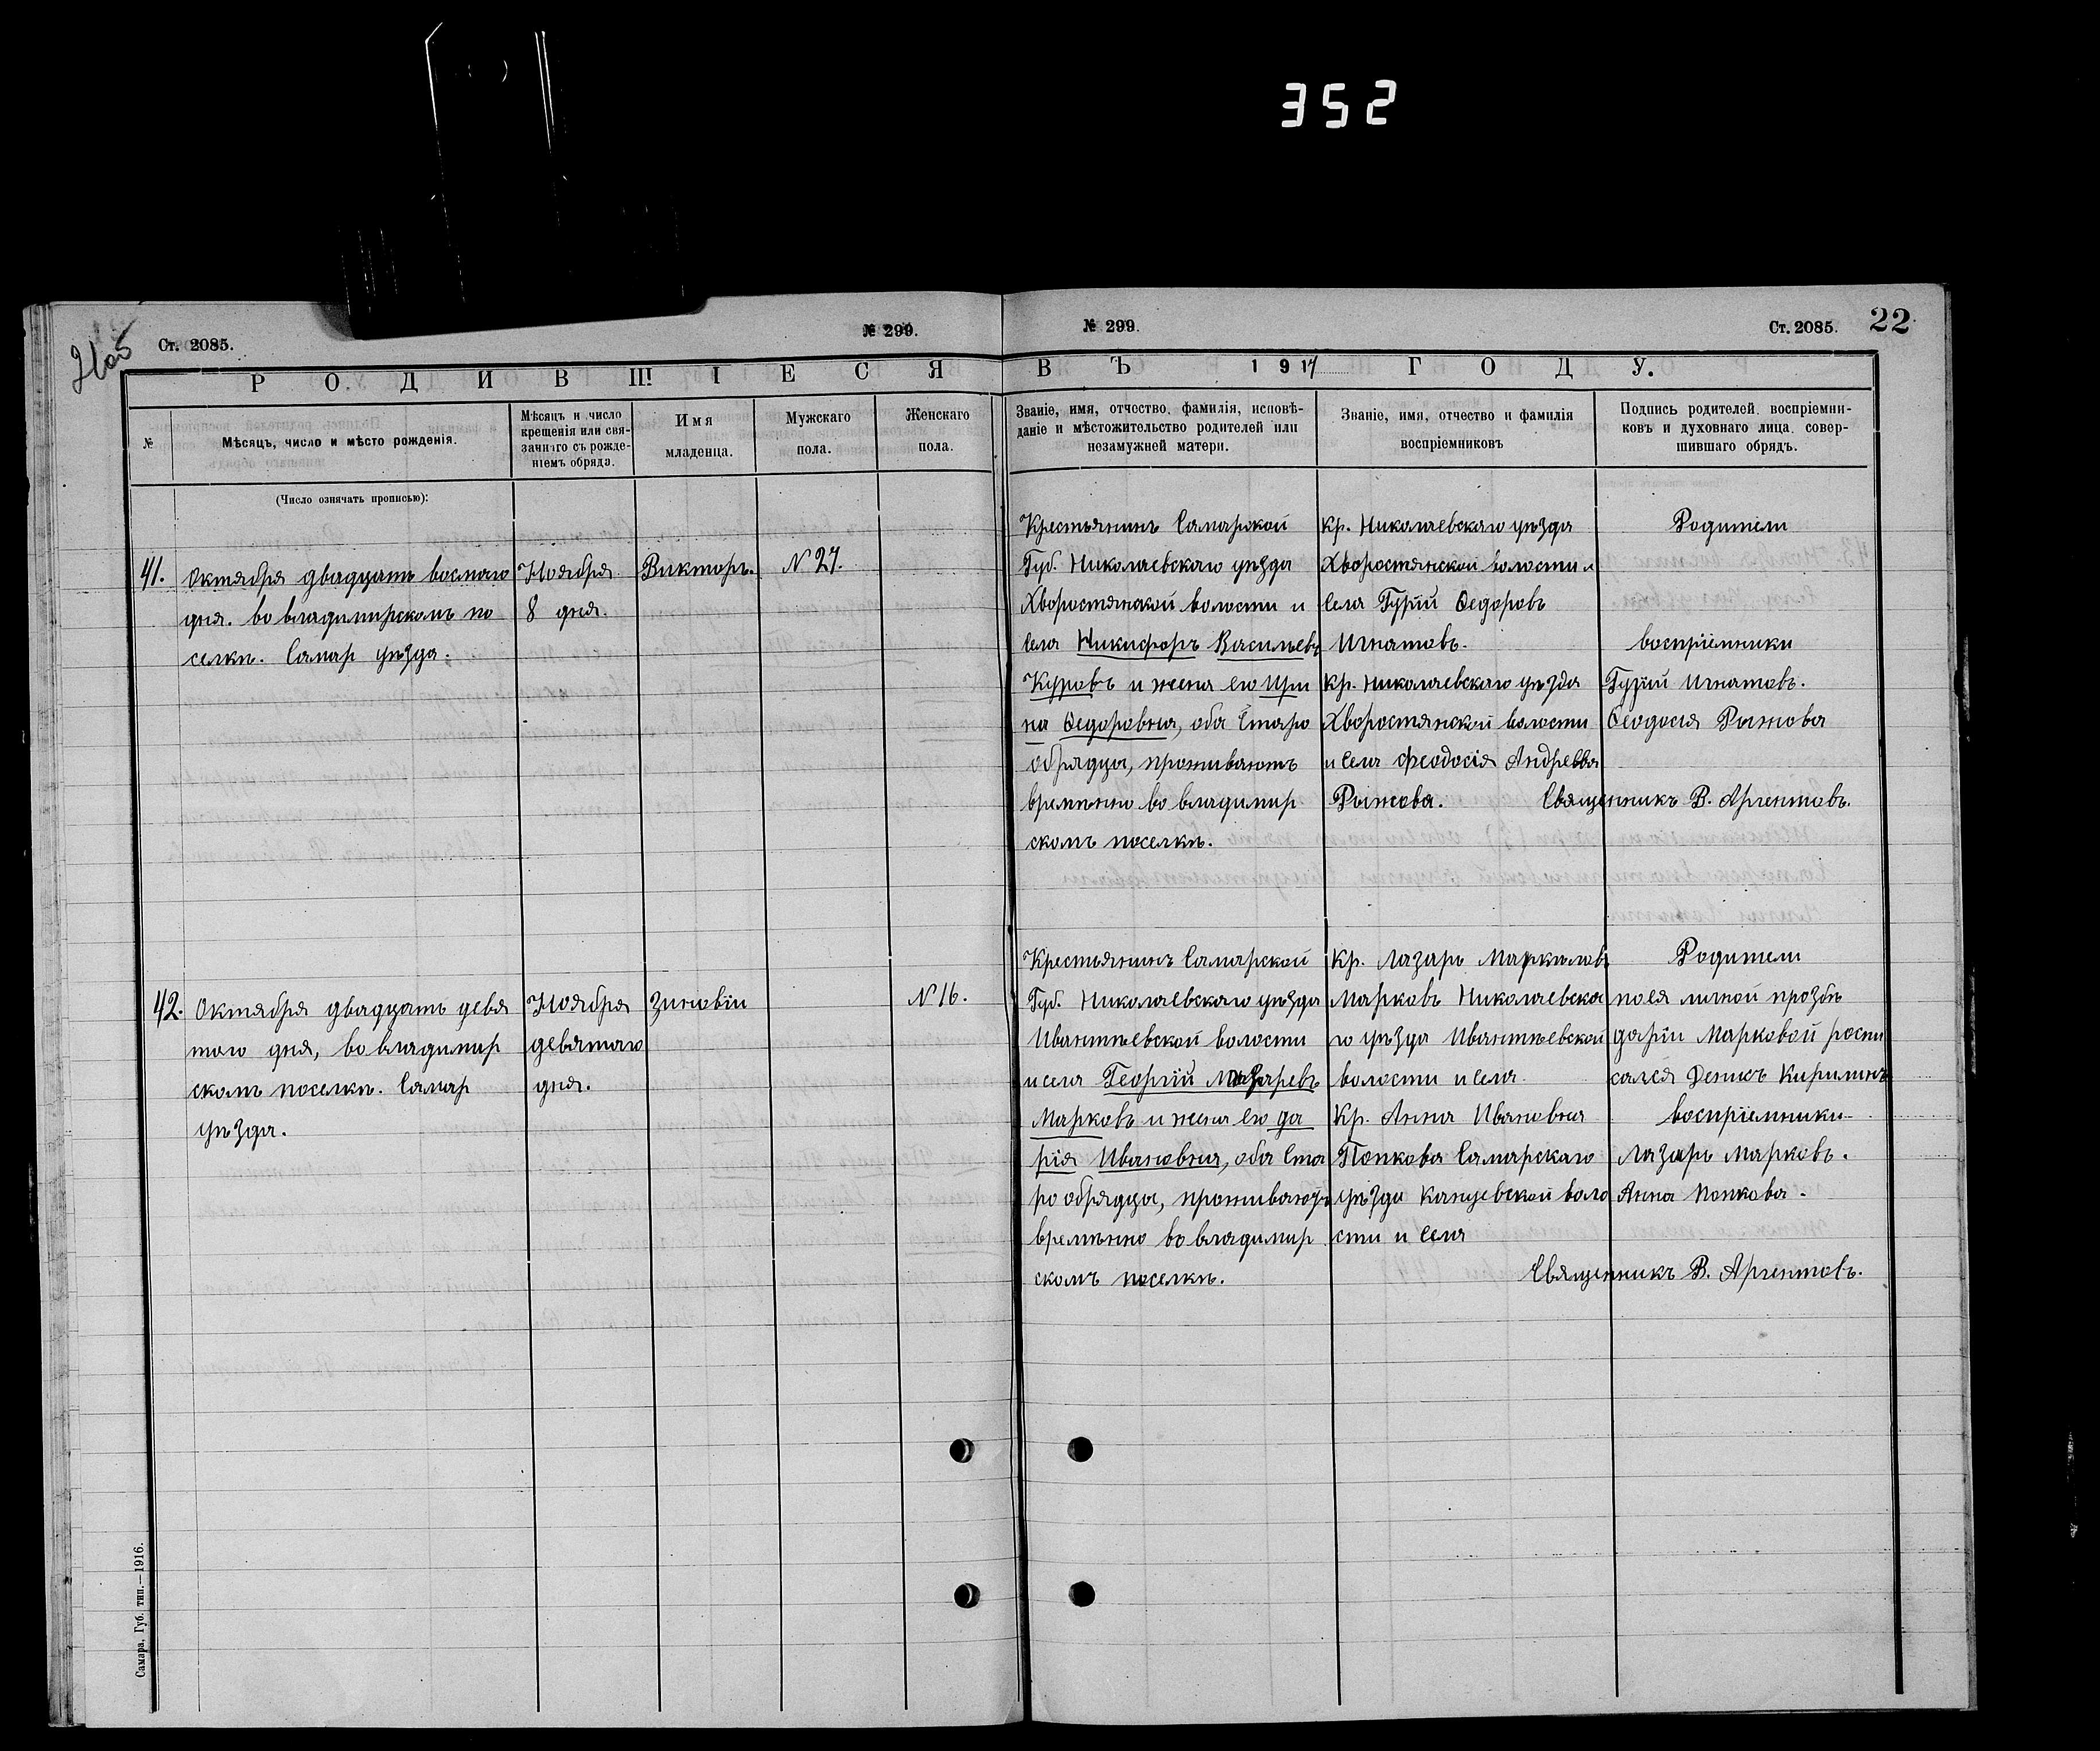 352
Ноя
Ст. 2085.
№ 299.
№ 299.
Ст. 2085.
22
РОДИВШІЕСЯ
ВЪ 1917 ГОДУ.
№
Мѣсяцъ, число и мѣсто рожденія.
Мѣсяцъ и число
крещенія или свя-
заннаго съ рожде-
ніемъ обряда.
Имя
младенца.
Мужскаго
пола.
Женскаго
пола.
Званіе, имя, отчество, фамилія, исповѣ-
даніе и мѣстожительство родителей или
незамужней матери.
Званіе, имя, отчество и фамилія
воспріемниковъ
Подпись родителей, воспріемни-
ковъ и духовнаго лица, совер-
шившаго обрядъ.
(Число означать прописью):
41.
Октября двадцать восмаго
дня. во владимирскомъ по
селкѣ. Самар уѣзда.
Ноября
8 дня.
Викторъ.
N 27.
Крестьянинъ Самарской
Губ. Николаевскаго уѣзда
Хворостянской волости и
села Никифоръ Васильевъ
Куровъ и жена его Ири
на Ѳедоровна, оба Старо
обрядцы, проживаютъ
времѣнно во владимир
скомъ поселкѣ.
Кр. Николаевскаго уѣзда
Хворостянской волости и
села Гурій Ѳедоровъ
Игнатовъ.
Кр. Николаевскаго уѣзда
Хворостянской волости
и села Феодосія Андревва
Рыжова.
Родители
воспріемники
Гурій Игнатовъ.
Ѳеодосія Рыжова
Священникъ В. Аргентовъ.
42.
Октября двадцать девя
таго дня, во владимир
скомъ поселкѣ. Самар
уѣзда.
Ноября
девятаго
дня.
Зиновіи
N 16.
Крестьянинъ Самарской
Губ. Николаевскаго уѣзда
Ивантѣевской волости
и села Георгій Лазаревъ
Марковъ и жена его да
рія Ивановна, оба Ста
ро обрядцы, проживаютъ
времѣнно во владимир
скомъ поселкѣ.
Кр. Лазарь Маркѣловъ
Марковъ Николаевска
го уѣзда Ивантѣевской
волости и села
Кр. Анна Ивановна
Попкова Самарскаго
уѣзда Кануевской воло
сти и села
Родители
по ея личной прозбѣ
даріи Марковой роспи
сался Денисъ Кирилинъ
воспріемники
Лазарь Марковъ.
Анна Попкова.
Священникъ В. Аргентовъ.
Самара, Губ. тип.—1916.